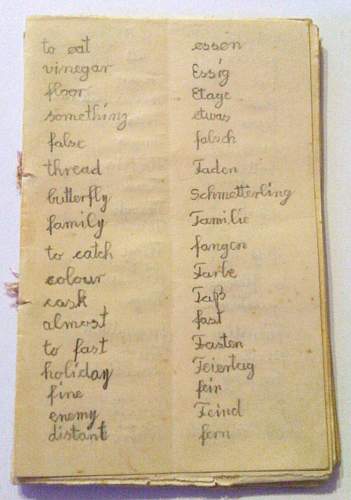 to eat essen
vinegar Essig
floor Etage
something etwas
false falsch
thread Faden
butterfly Schmetterling
family Familie
to catch fangen
colour Farbe
cask Faß
almost fast
to fast Fasten
holiday Feiertag
fine fein
enemy Feind
distant fern